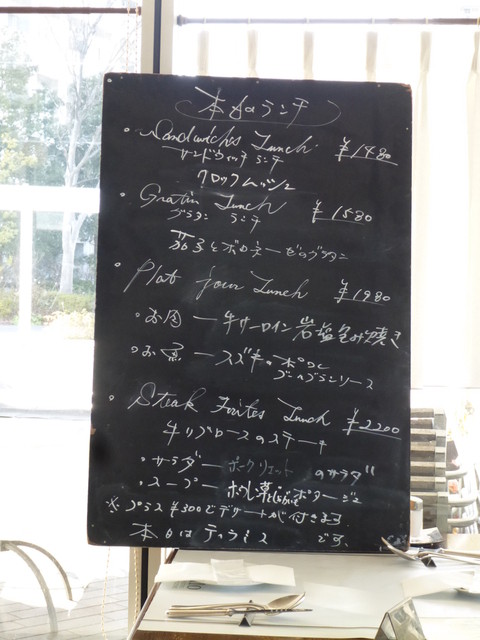 本日のランチ
・Sandwiches Lunch ¥1480
サンドウィッチ ランチ
クロックムッシュ
・Gratin Lunch ¥1580
グラタン ランチ
茄子とボロネーゼのグラタン
・Plat jour Lunch ¥1980
・お肉ー牛サーロイン岩塩包み焼き
・お魚ースズキのポワレ
ブールブランソース
・Steak Frites Lunch ¥2200
牛リブロースのステーキ
・サラダーポークリエットのサラダ
・スープーほうれん草とじゃがいもポタージュ
※プラス¥300でデザートが付きます。
本日はティラミス です。